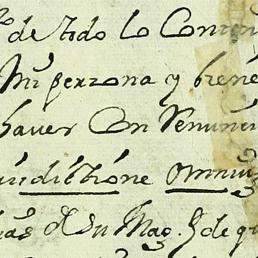 de todo lo Conten
Mi perzona y biene
haver Con Renunci
jurisdictione omnium
de su Mag.^d de qu